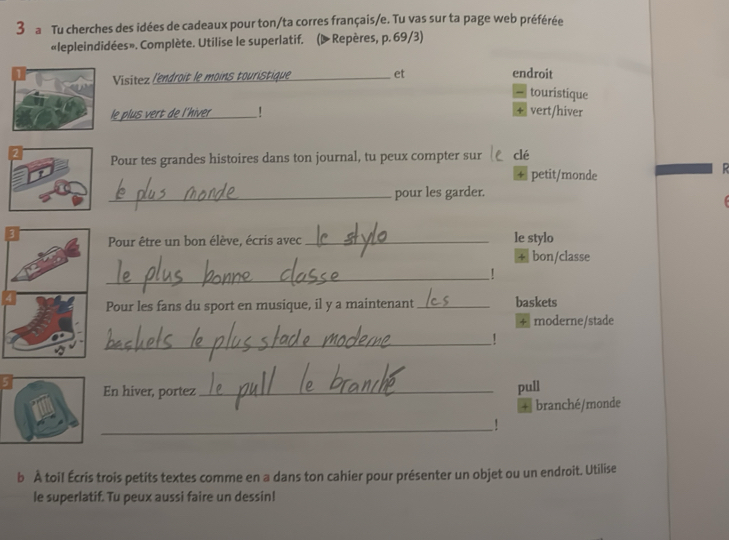 3 a Tu cherches des idées de cadeaux pour ton/ta corres français/e. Tu vas sur ta page web préférée
«lepleindidées». Complète. Utilise le superlatif. (▷ Repères, p. 69/3)
1
Visitez l'endroit le moins touristique et
le plus vert de l'hiver !
endroit
– touristique
+ vert/hiver
2
Pour tes grandes histoires dans ton journal, tu peux compter sur le
le plus monde pour les garder.
clé
+ petit/monde
3
Pour être un bon élève, écris avec le stylo
le plus bonne classe !
le stylo
+ bon/classe
4
Pour les fans du sport en musique, il y a maintenant les
baskets le plus stade moderne !
baskets
+ moderne/stade
5
En hiver, portez le pull le branché
!
pull
+ branché/monde
b À toi! Écris trois petits textes comme en a dans ton cahier pour présenter un objet ou un endroit. Utilise
le superlatif. Tu peux aussi faire un dessin!
R
6